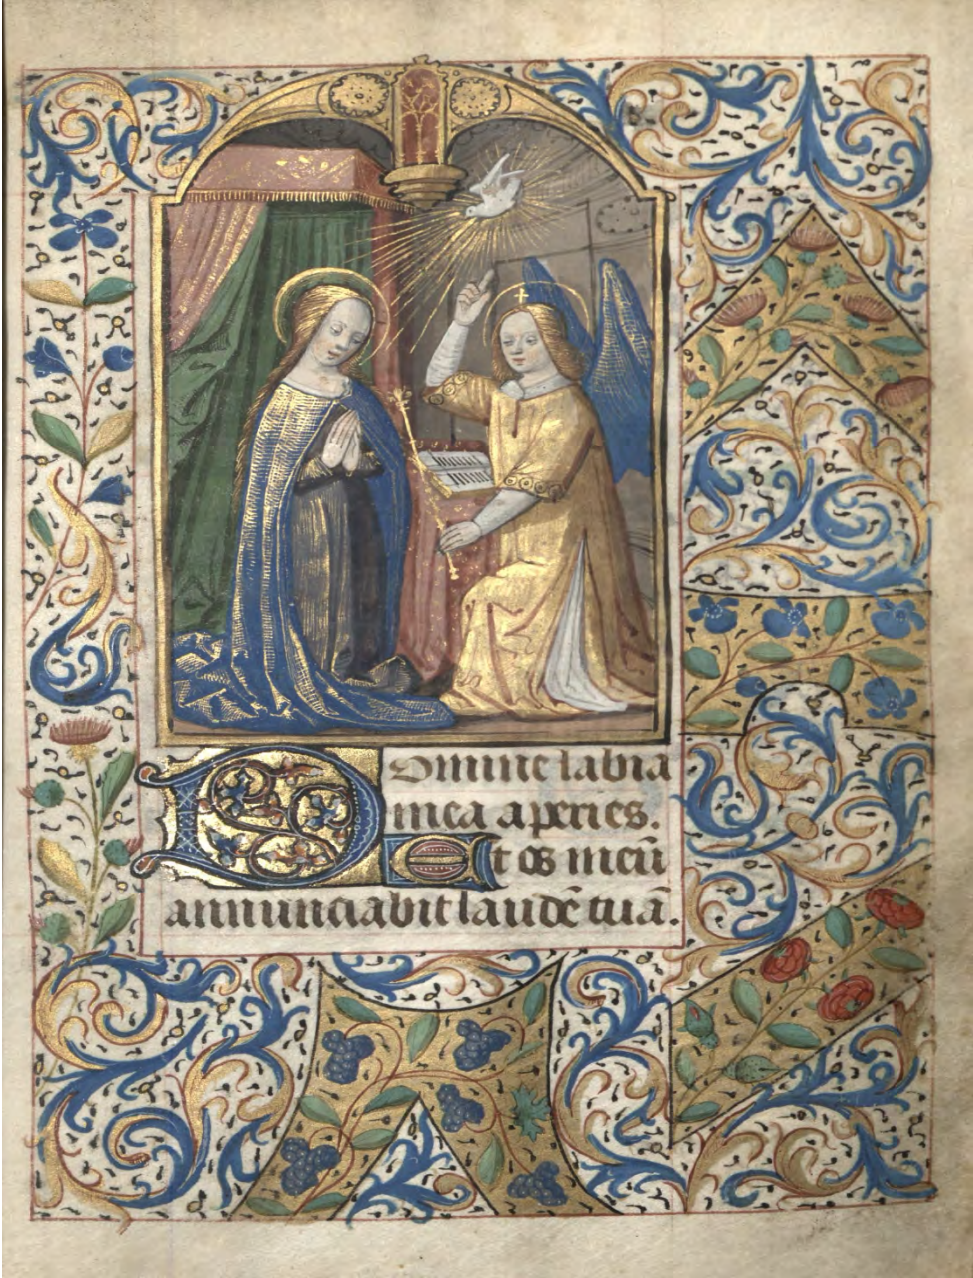 Domine labia
mea aperies.
Et os meũ
annunciabit laudẽ tuã.